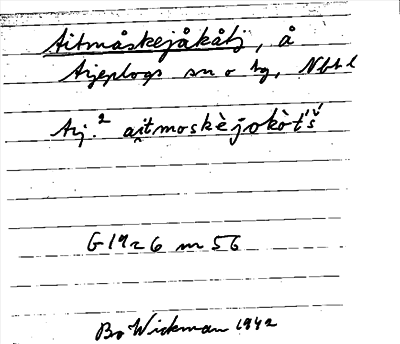 Aitmåskejåkåtj, å
Arjeplogs sn o tg, Nbt l
Arj.² ai̯tmoskèjokòt'š'
G1926 nr 56
Bo Wickman 1942